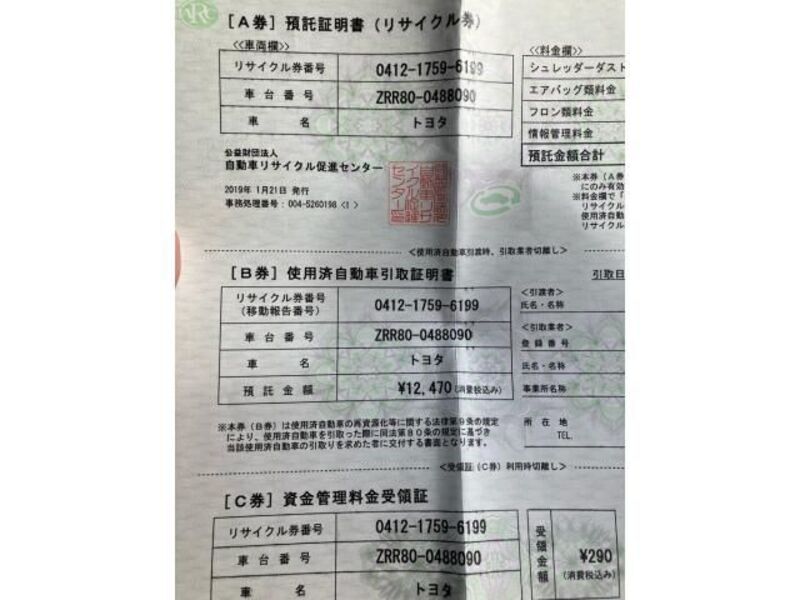 ARC
［A券］預託証明書（リサイクル券）
≪車両欄≫
リサイクル券番号 0412-1759-6199
車台番号 ZRR80-0488090
車名 トヨタ
≪料金欄≫
シュレッダーダスト
エアバッグ類料金
フロン類料金
情報管理料金
預託金額合計
公益財団法人
自動車リサイクル促進センター
2019年 1月21日 発行
事務処理番号：004-5260198 <1>
※本券（A券
にのみ有効
※料金欄で「
リサイクル
使用済自動
リサイクル
＜使用済自動車引渡時、引取業者切離し＞
［B券］使用済自動車引取証明書
引取日
リサイクル券番号
（移動報告番号） 0412-1759-6199
車台番号 ZRR80-0488090
車名 トヨタ
預託金額 ¥12,470（消費税込み）
＜引渡者＞
氏名・名称
＜引取業者＞
登録番号
氏名・名称
事業所名称
所在地
TEL
※本券（B券）は使用済自動車の再資源化等に関する法律第9条の規定
により、使用済自動車を引取った際に同法第80条の規定に基づき
当該使用済自動車の引取りを求めた者に交付する書面となります。
＜受領証（C券）利用時切離し＞
［C券］資金管理料金受領証
リサイクル券番号 0412-1759-6199
車台番号 ZRR80-0488090
車名 トヨタ
受領金額 ¥290
（消費税込み）